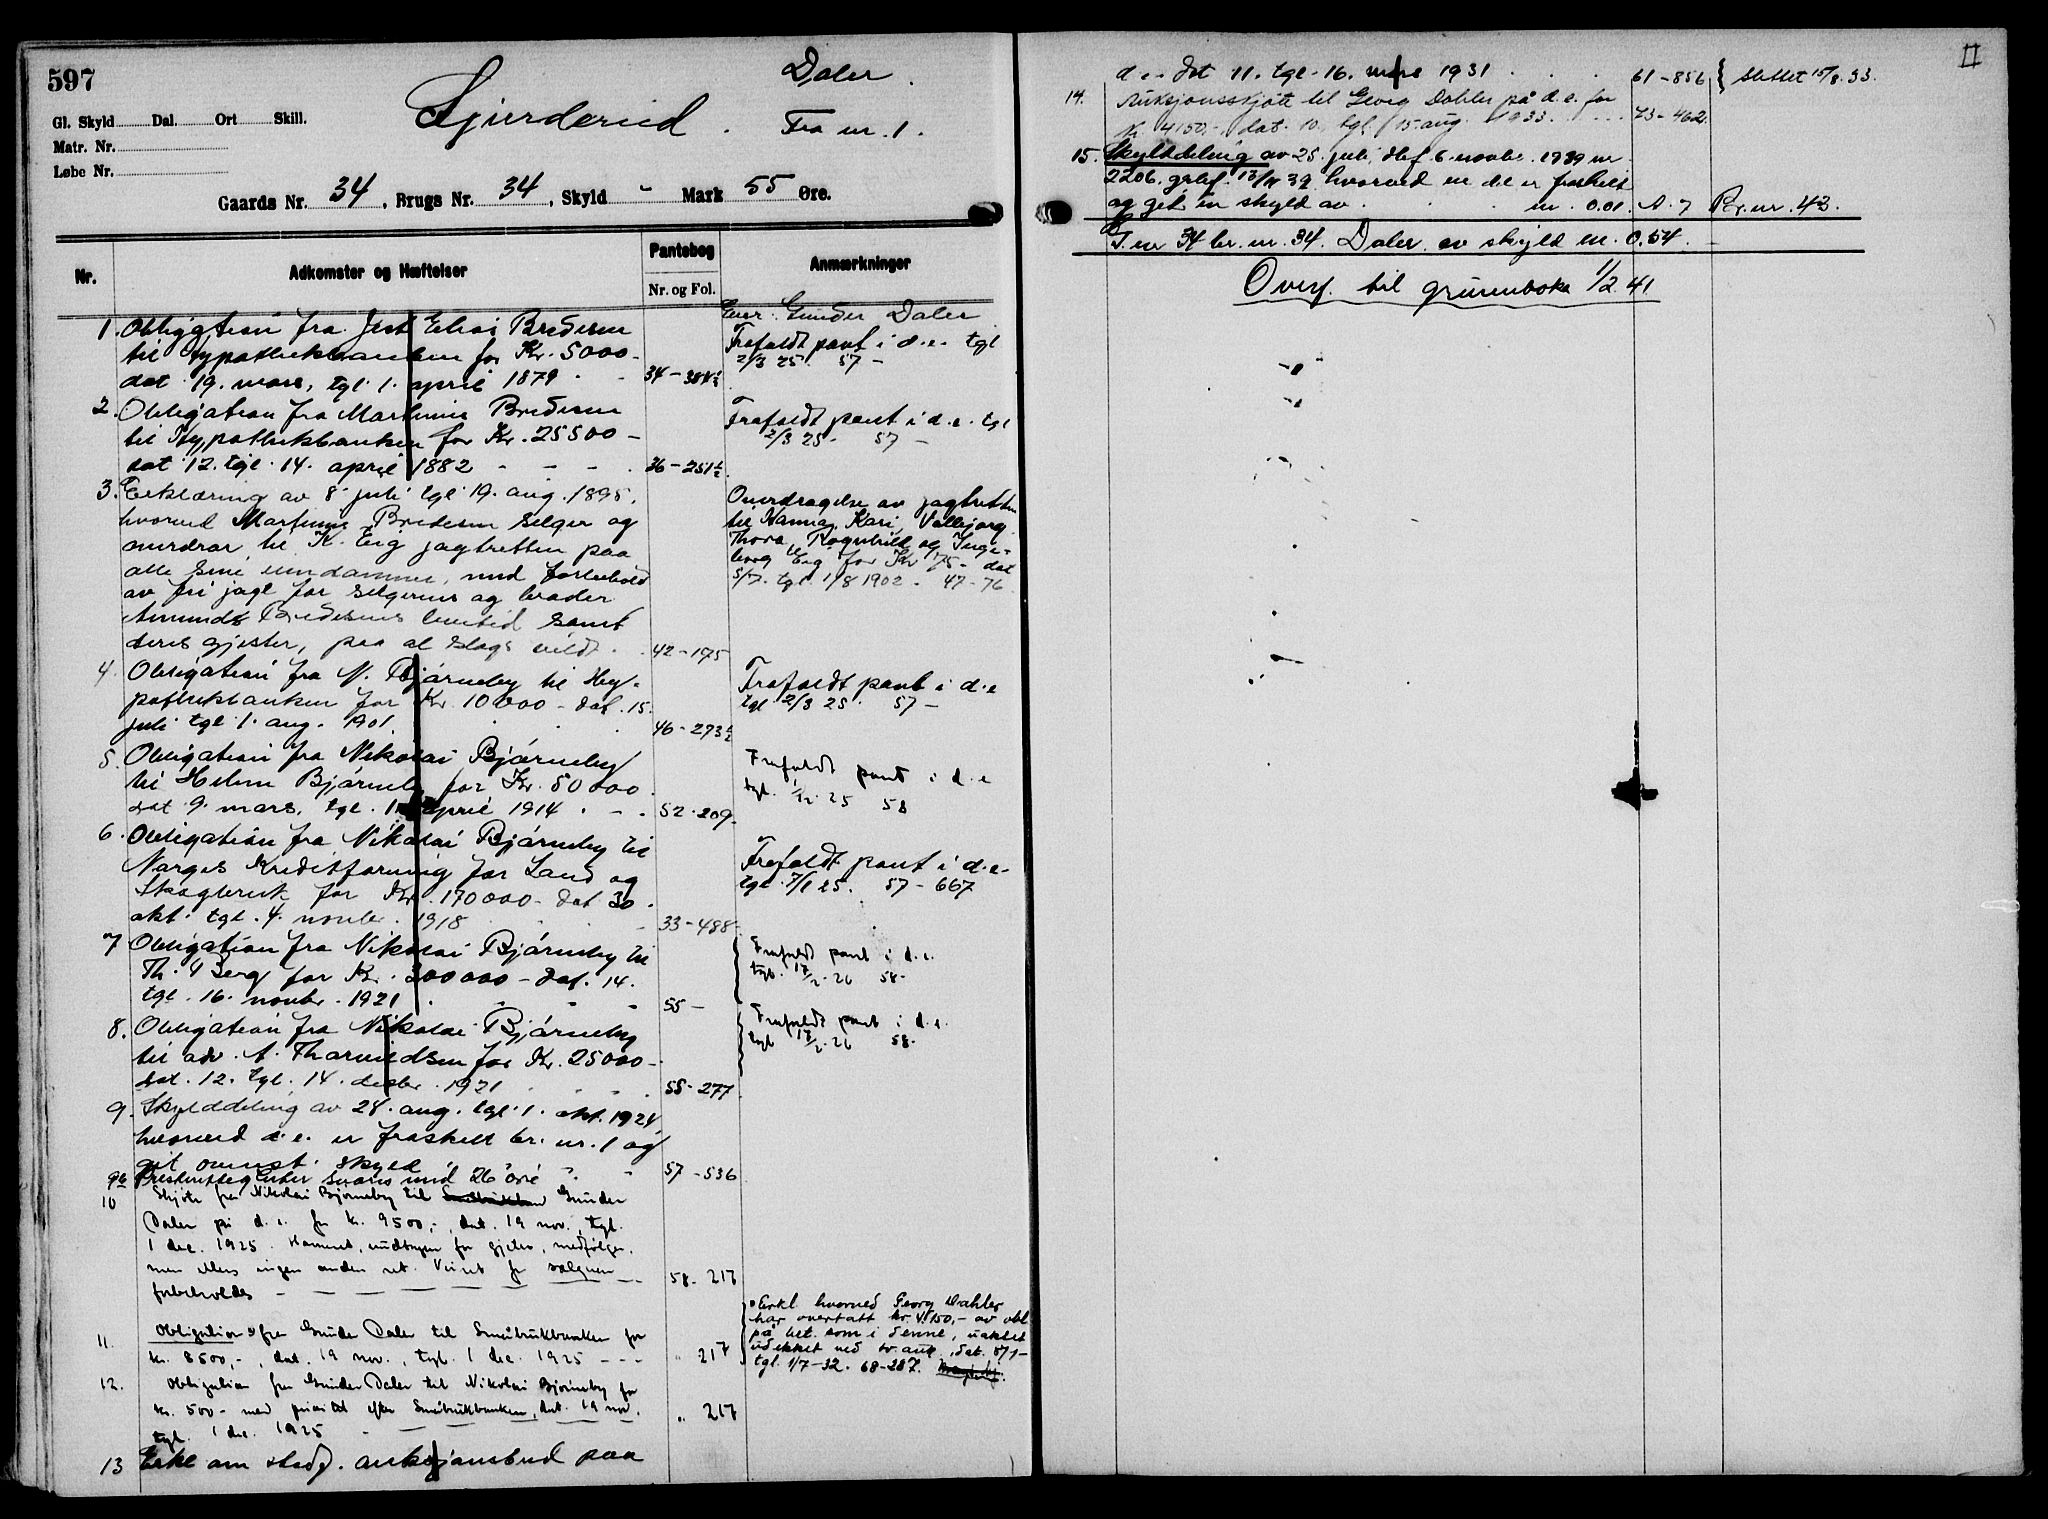 597
Daler.
Gl. Skyld Dal. Ort Skill.
Sjurderud.
Fra nr. 1.
Matr. Nr.
Løbe Nr.
Gaards Nr. 34, Brugs Nr. 34, Skyld - Mark 55 Øre.
Nr.
Adkomster og Hæftelser
Pantebog
Nr. og Fol.
Anmærkninger
Eier: Gunder Daler
1. Obligation fra Elias Bredesen
til Hypothekbanken for Kr. 5000-
dat 19. mars, tgl. 1. april 1879
34-384½
Frafaldt pant i d.e. tgl
2/3 25. 57-
2. Obligation fra Martinus Bredesen
til Hypothekbanken for Kr. 25500-
dat 12. tgl. 14. april 1882 - - -
36-251½
Frafaldt pant i d.e. tgl
2/3 25. 57-
3. Erklæring av 8. juli tgl 19. aug. 1895,
hvorved Martinus Bredesen selger og
overdrar til K. Eig jagtretten paa
alle sine eiendommer, med forbehold
av fri jagt for selgerens og broder
Amunds Bredesens levetid samt
deres gjester, paa al slags vildt.
42-175
Overdragelse av jagtretten
til Hanna, Kari, Valbjorg
Thora, Ragnhild og Inge-
borg Eig for Kr 75- dat
5/7. tgl. 1/8 1902. 47-76
4. Obligation fra N. Bjørneby til Hy-
pothekbanken for Kr. 10000- dat. 15.
juli tgl 1. aug. 1901
46-273½
Frafaldt pant i d.e
tgl 2/3 25. 57-
5. Obligation fra Nikolai Bjørneby
til Helene Bjørneby for Kr. 50000.
dat 9. mars, tgl. 1. april 1914
52.209.
Frafaldt pant i d.e
tgl. 1/12.25 58
6. Obligation fra Nikolai Bjørneby til
Norges Kreditforening for Land og
Skogbruk for Kr. 170000- dat 30.
okt. tgl. 4. novbr. 1918
33-488
Frafaldt pant i d.e-
tgl. 7/1 25. 57-667
7 Obligation fra Nikolai Bjørneby til
Th. Berg for Kr. 300000- dat. 14.
tgl. 16. novbr. 1921
55-
Frafaldt pant i d.e.
tgl. 17/2.26 58-
8. Obligation fra Nikolai Bjørneby
til adv. A. Thorvildsen for Kr. 25000-
dat. 12. tgl. 14. desbr. 1921
55-277
Frafaldt pant i d.e.
tgl 17/2.26 58-
9. Skylddeling av 28. aug. tgl. 1. okt. 1924,
hvorved d.e. er fraskilt br. nr. 1 og
git ovenst. skyld
57-536
9a Presterettigheter svares med 26 øre
10 Skjøte fra Nikolai Bjørneby til Gunder
Daler på d.e. for kr. 9500,-, dat. 19 nov., tgl.
1 dec. 1925. Havneret, undtagen for gjeter, medfølger.
men ellers ingen anden ret. Veiret for sælgeren
forbeholdes - - - - - -
58-217
11. Obligation fra Gunder Daler til Småbrukbanken for
kr. 8500,-, dat. 19 nov., tgl. 1 dec. 1925 - - -
" 217
Erkl. hvorved Georg Dahler
har overtatt kr 4150,- av obl
på bet. som i denne,
tgl. 1/7-32. 68-287.
12. Obligation fra Gunder Daler til Nikolai Bjørneby for
kr. 500- med prioritet efter Småbrukbanken, dat. 19 nov.
tgl. 1 dec. 1925
" 217
13 Erkl om stedf. auksjonsbud paa
II
d.e. dat 11. tgl. 16. mars 1931
61-856
Slettet 15/8.33.
14. Auksjonsskjøte til Georg Dahler på d.e. for
kr. 4150,- dat. 10, tgl. 15. aug. 1933.
73-462
15. Skylddeling av 25. juli, tlf. 6. novbr. 1939 nr
2206. grbf. 13/11 39 hvorved en del er fraskilt
og git en skyld av m. 0.01.
A. 7
Br. nr. 43.
G. nr 34 br. nr. 34. Daler av skyld m. 0.54.
Overf. til grunnboka 1/2 41